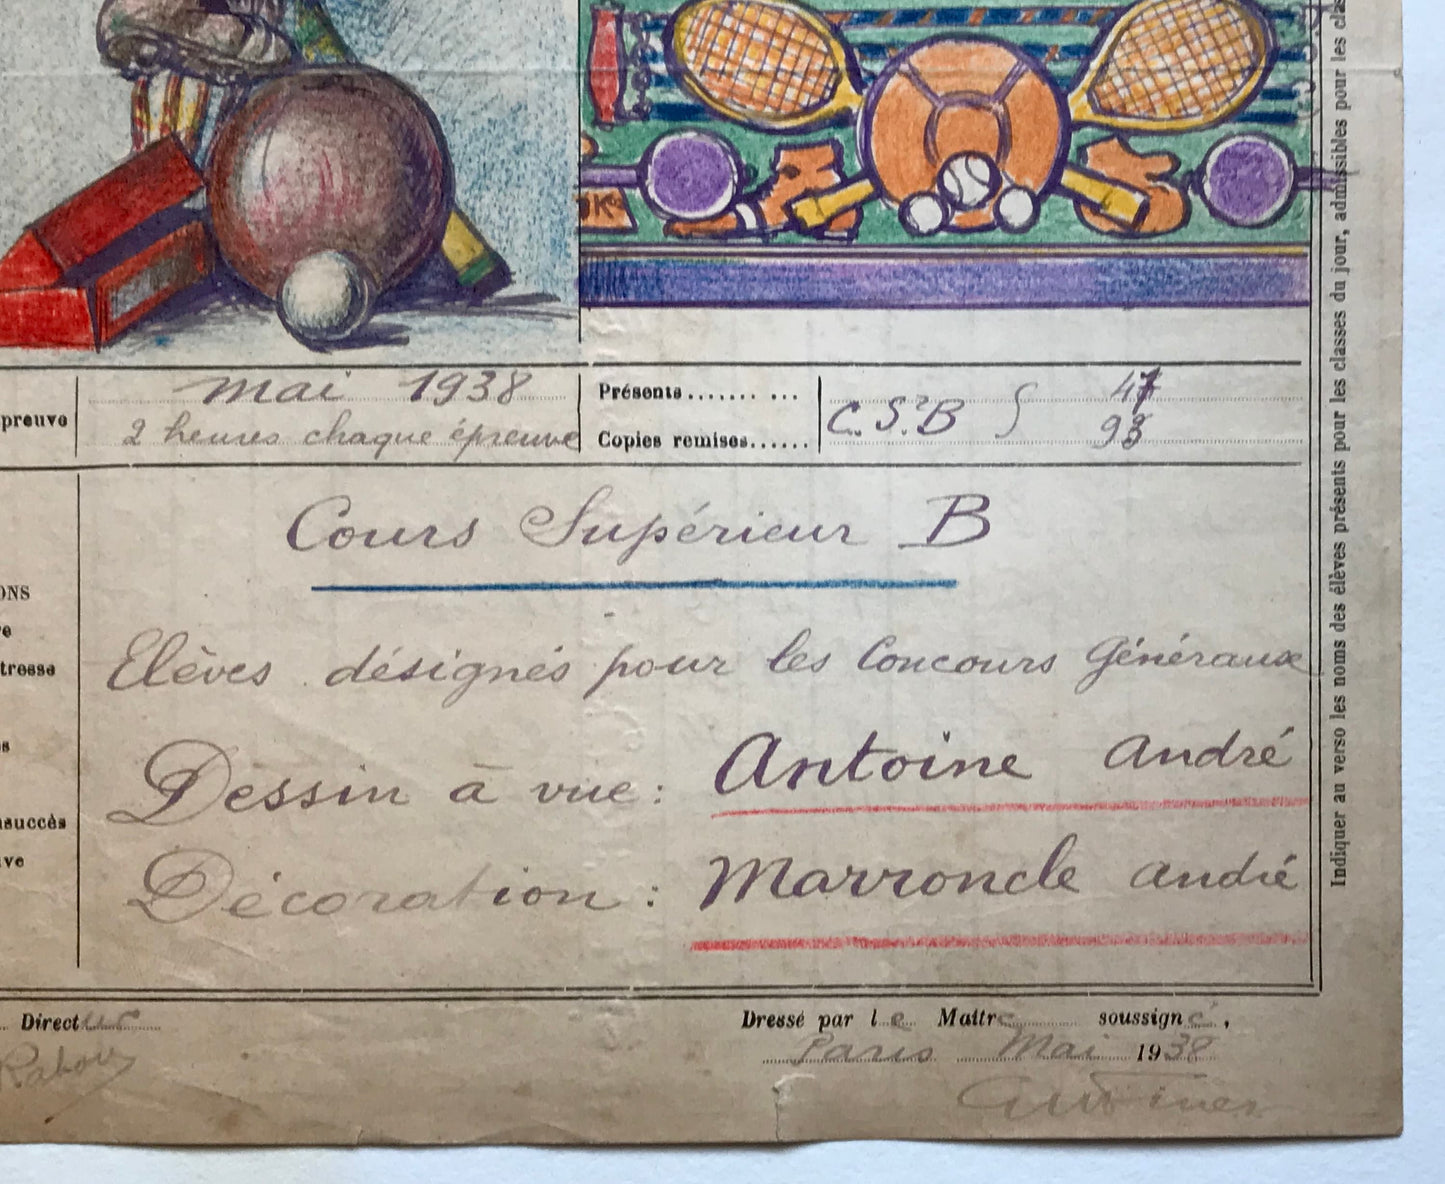 mai 1938
preuve
2 heures chaque épreuve
Présents....... ...
Copies remises......
C.S.B
47
93
Cours Supérieur B
ONS
Elèves désignés pour les Concours Généraux
tresse
Dessin à vue : Antoine André
nsuccès
Décoration : Marroncle André
Directeur
Dressé par le Maître soussigné,
Paris Mai 1938
Indiquer au verso les noms des élèves présents pour les classes du jour, admissibles pour les clas